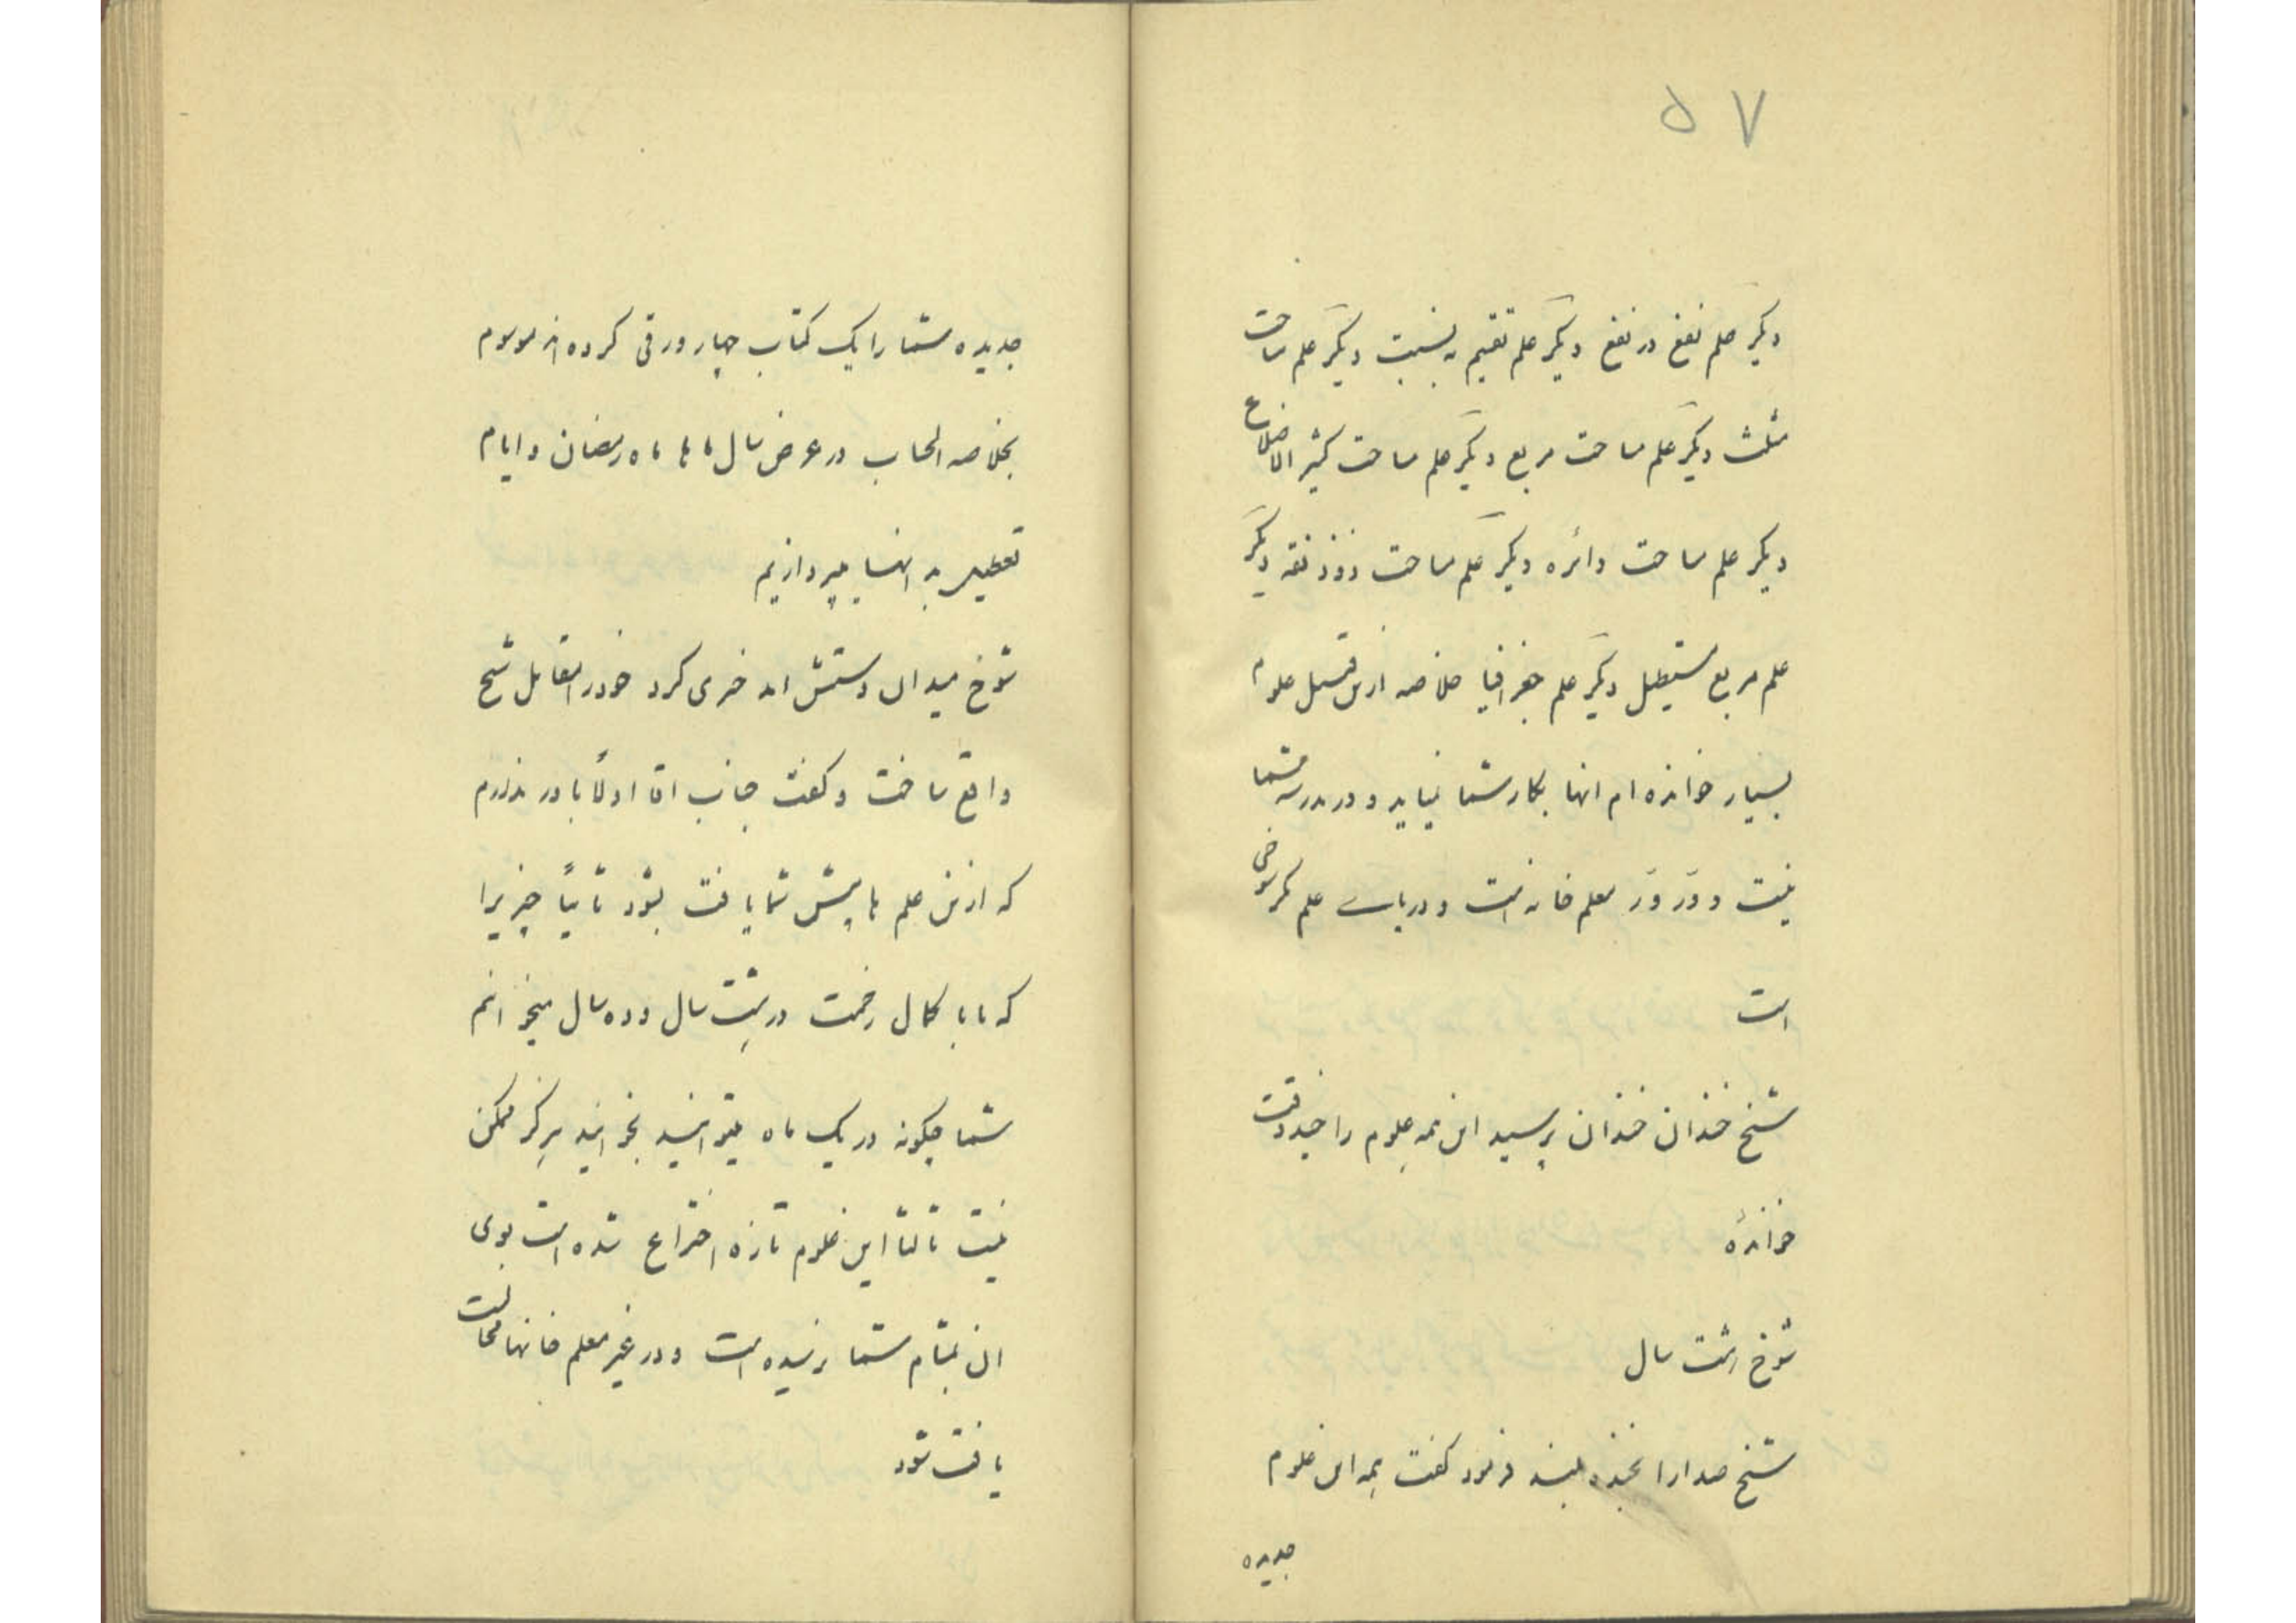 ۵۷
دیگر علم نفع در نفع دیگر علم تقسیم به نسبت دیگر علم مساحت
مثلث دیگر علم مساحت مربع دیگر علم مساحت کثیر الاضلاع
دیگر علم مساحت دائره دیگر علم مساحت ذوذنقه دیگر
علم مربع مستطیل دیگر علم جغرافیا خلاصه ازین قبیل علوم
بسیار خوانده ام انها بکار شما نمیاید و در مدرسه شما
نیست و در ور معلم خانه است و دریای علم
است
شیخ خندان خندان پرسید این همه علوم را چند وقت
خواندهٔ
شوخ هشت سال
شیخ صدا را بخنده بلند فرمود گفت همه این علوم
جدیده
جدیده شما را یک کتاب چهار ورقی کرده اند موسوم
بخلاصه الحساب در عرض سال ماها ماه رمضان و ایام
تعطیل به انها میپردازیم
شوخ میدان دستش امد خری کرد خود را مقابل شیخ
واقع ساخت و گفت جناب اقا اولاً باور ندارم
که ازین علم ها پیش شما یافت بشود ثانیاً چیزیرا
که ما با کمال زحمت در هشت سال و ده سال میخوانم
شما چگونه در یک ماه میتوانید بخوانید هرگز ممکن
نیست ثالثا این علوم تازه اختراع شده است بوی
ان بمشام شما نرسیده است و در غیر معلم خانها محالست
یافت شود